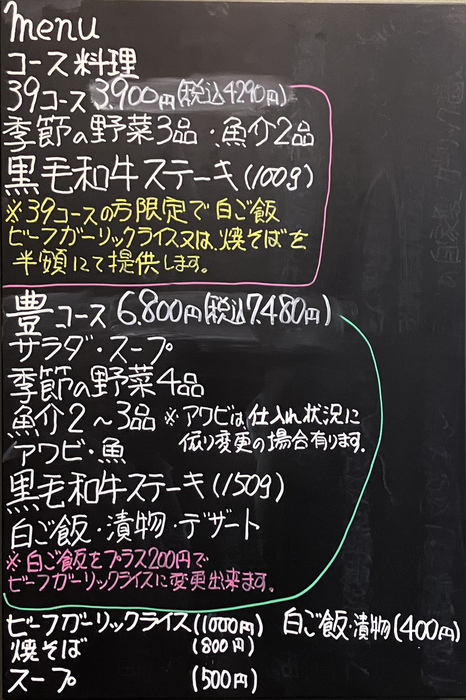 menu
コース料理
39コース 3,900円(税込4290円)
季節の野菜3品・魚介2品
黒毛和牛ステーキ(100g)
※39コースの方限定で白ご飯
ビーフガーリックライス又は、焼そばを
半額にて提供します。
豊コース 6,800円(税込7,480円)
サラダ・スープ
季節の野菜4品
魚介2～3品 ※アワビは仕入れ状況に
依り変更の場合有ります。
アワビ・魚
黒毛和牛ステーキ(150g)
白ご飯・漬物・デザート
※白ご飯をプラス200円で
ビーフガーリックライスに変更出来ます。
ビーフガーリックライス(1000円) 白ご飯・漬物(400円)
焼そば (800円)
スープ (500円)